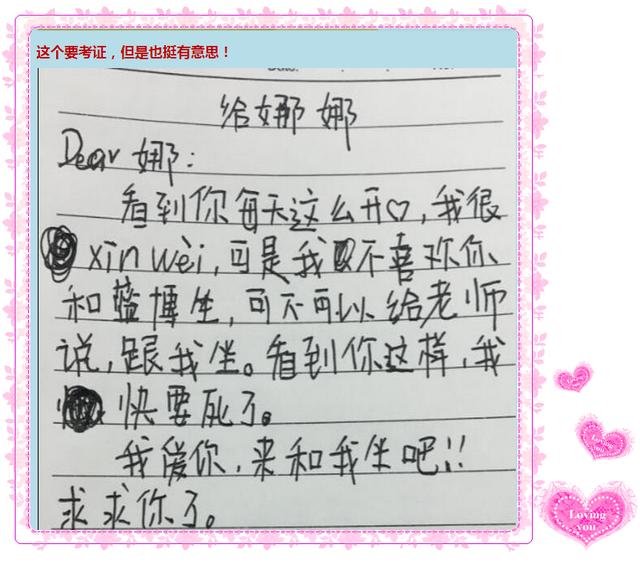 这个要考证，但是也挺有意思！
给娜娜
Dear 娜：
看到你每天这么开♡，我很
xin wèi，可是我不喜欢你
和蓝博生，可不可以给老师
说，跟我坐。看到你这样，我
快要死了。
我爱你，来和我坐吧!!
求求你了。
Loving
you